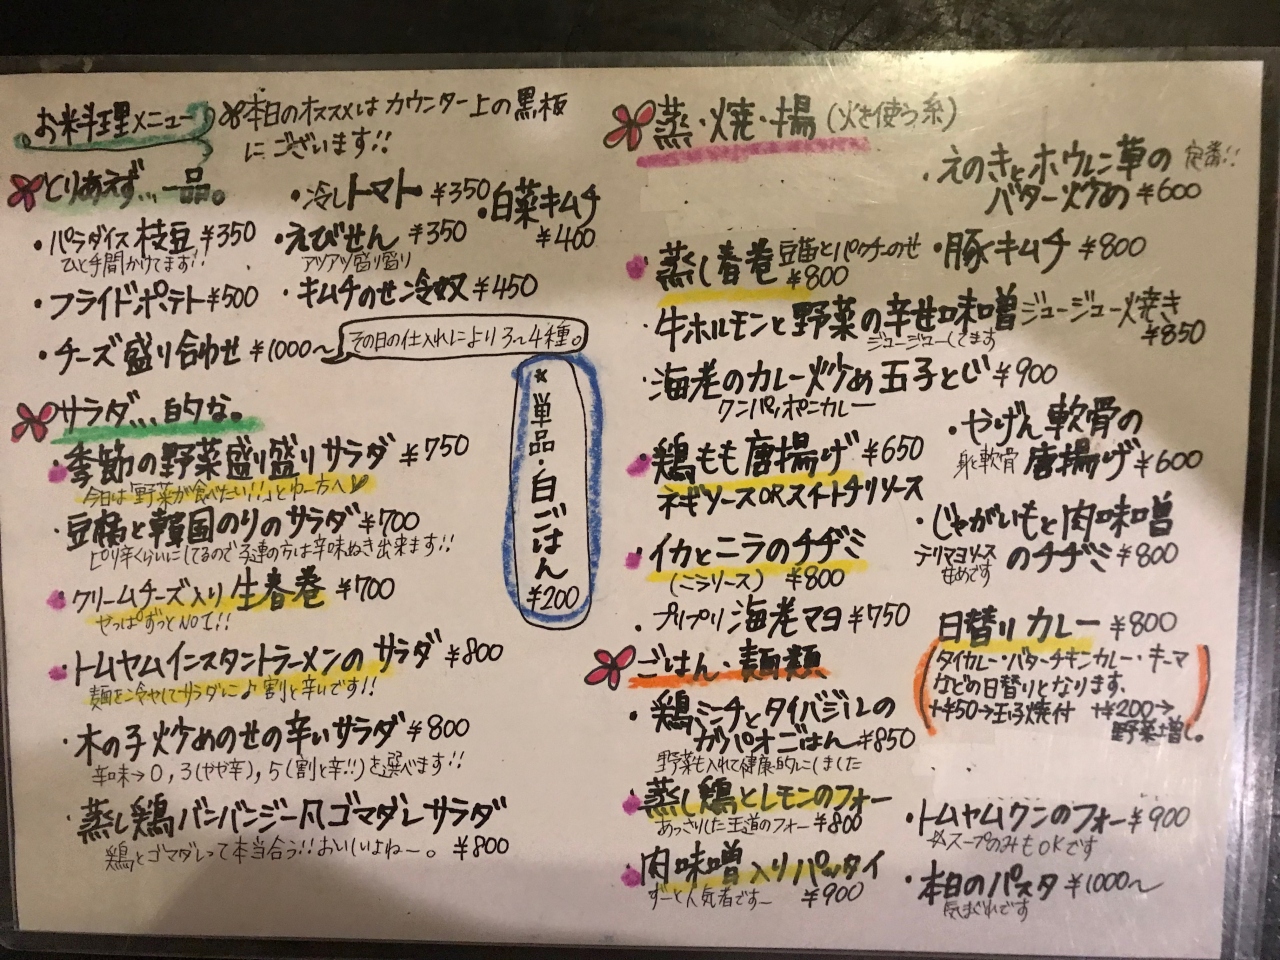 お料理メニュー
※本日のオススメはカウンター上の黒板
にございます!!
とりあえず…一品。
・パラダイス枝豆 ¥350
ひと手間かけてます!!
・フライドポテト ¥500
・チーズ盛り合わせ ¥1000〜
その日の仕入れにより3〜4種。
・冷しトマト ¥350
・えびせん ¥350
アツアツ盛り盛り
・キムチのせ冷奴 ¥450
・白菜キムチ
¥400
サラダ…的な。
・季節の野菜盛り盛りサラダ ¥750
今日は「野菜が食べたい!!」とゆー方へ
・豆腐と韓国のりのサラダ ¥700
ピリ辛くらいにしてるので子連の方は辛味ぬき出来ます!!
・クリームチーズ入り生春巻 ¥700
せっぱずっとNO1!!
・トムヤムインスタントラーメンのサラダ ¥800
麺を冷やしてサラダに♪割と辛いです!!
・木の子炒めのせの辛いサラダ ¥800
辛味→0,3(やや辛),5(割と辛!!)を選べます!!
・蒸し鶏バンバンジー風ゴマダレサラダ
鶏とゴマダレって本当合う!!おいしいよねー。 ¥800
*単品・白ごはん
¥200
蒸・焼・揚(火を使う系)
・えのきとホウレン草の 定番!!
バター炒め ¥600
・蒸し春巻 豆苗とパクチーのせ
¥800
・豚キムチ ¥800
・牛ホルモンと野菜の辛甘味噌ジュージュー焼き
ジュージューしてます ¥850
・海老のカレー炒め玉子とじ ¥900
プーパッポンカレー
・鶏もも唐揚げ ¥650
ネギソースORスイートチリソース
・やげん軟骨の
身と軟骨 唐揚げ ¥600
・イカとニラのチヂミ
(ニラソース) ¥800
・じゃがいもと肉味噌
のチヂミ ¥800
テリマヨソース
甘めです
・プリプリ海老マヨ ¥750
ごはん・麺類
・鶏ミンチとタイバジルの
ガパオごはん ¥850
野菜も入れて健康的にしました
日替りカレー ¥800
(タイカレー・バターチキンカレー・キーマ
などの日替りとなります、
+¥50→玉子焼付 +¥200→
野菜増し。)
・蒸し鶏とレモンのフォー
あっさりした王道のフォー ¥800
・肉味噌入りパッタイ
ずーと人気者ですー ¥900
・トムヤムクンのフォー ¥900
※スープのみもOKです
・本日のパスタ ¥1000〜
気まぐれです